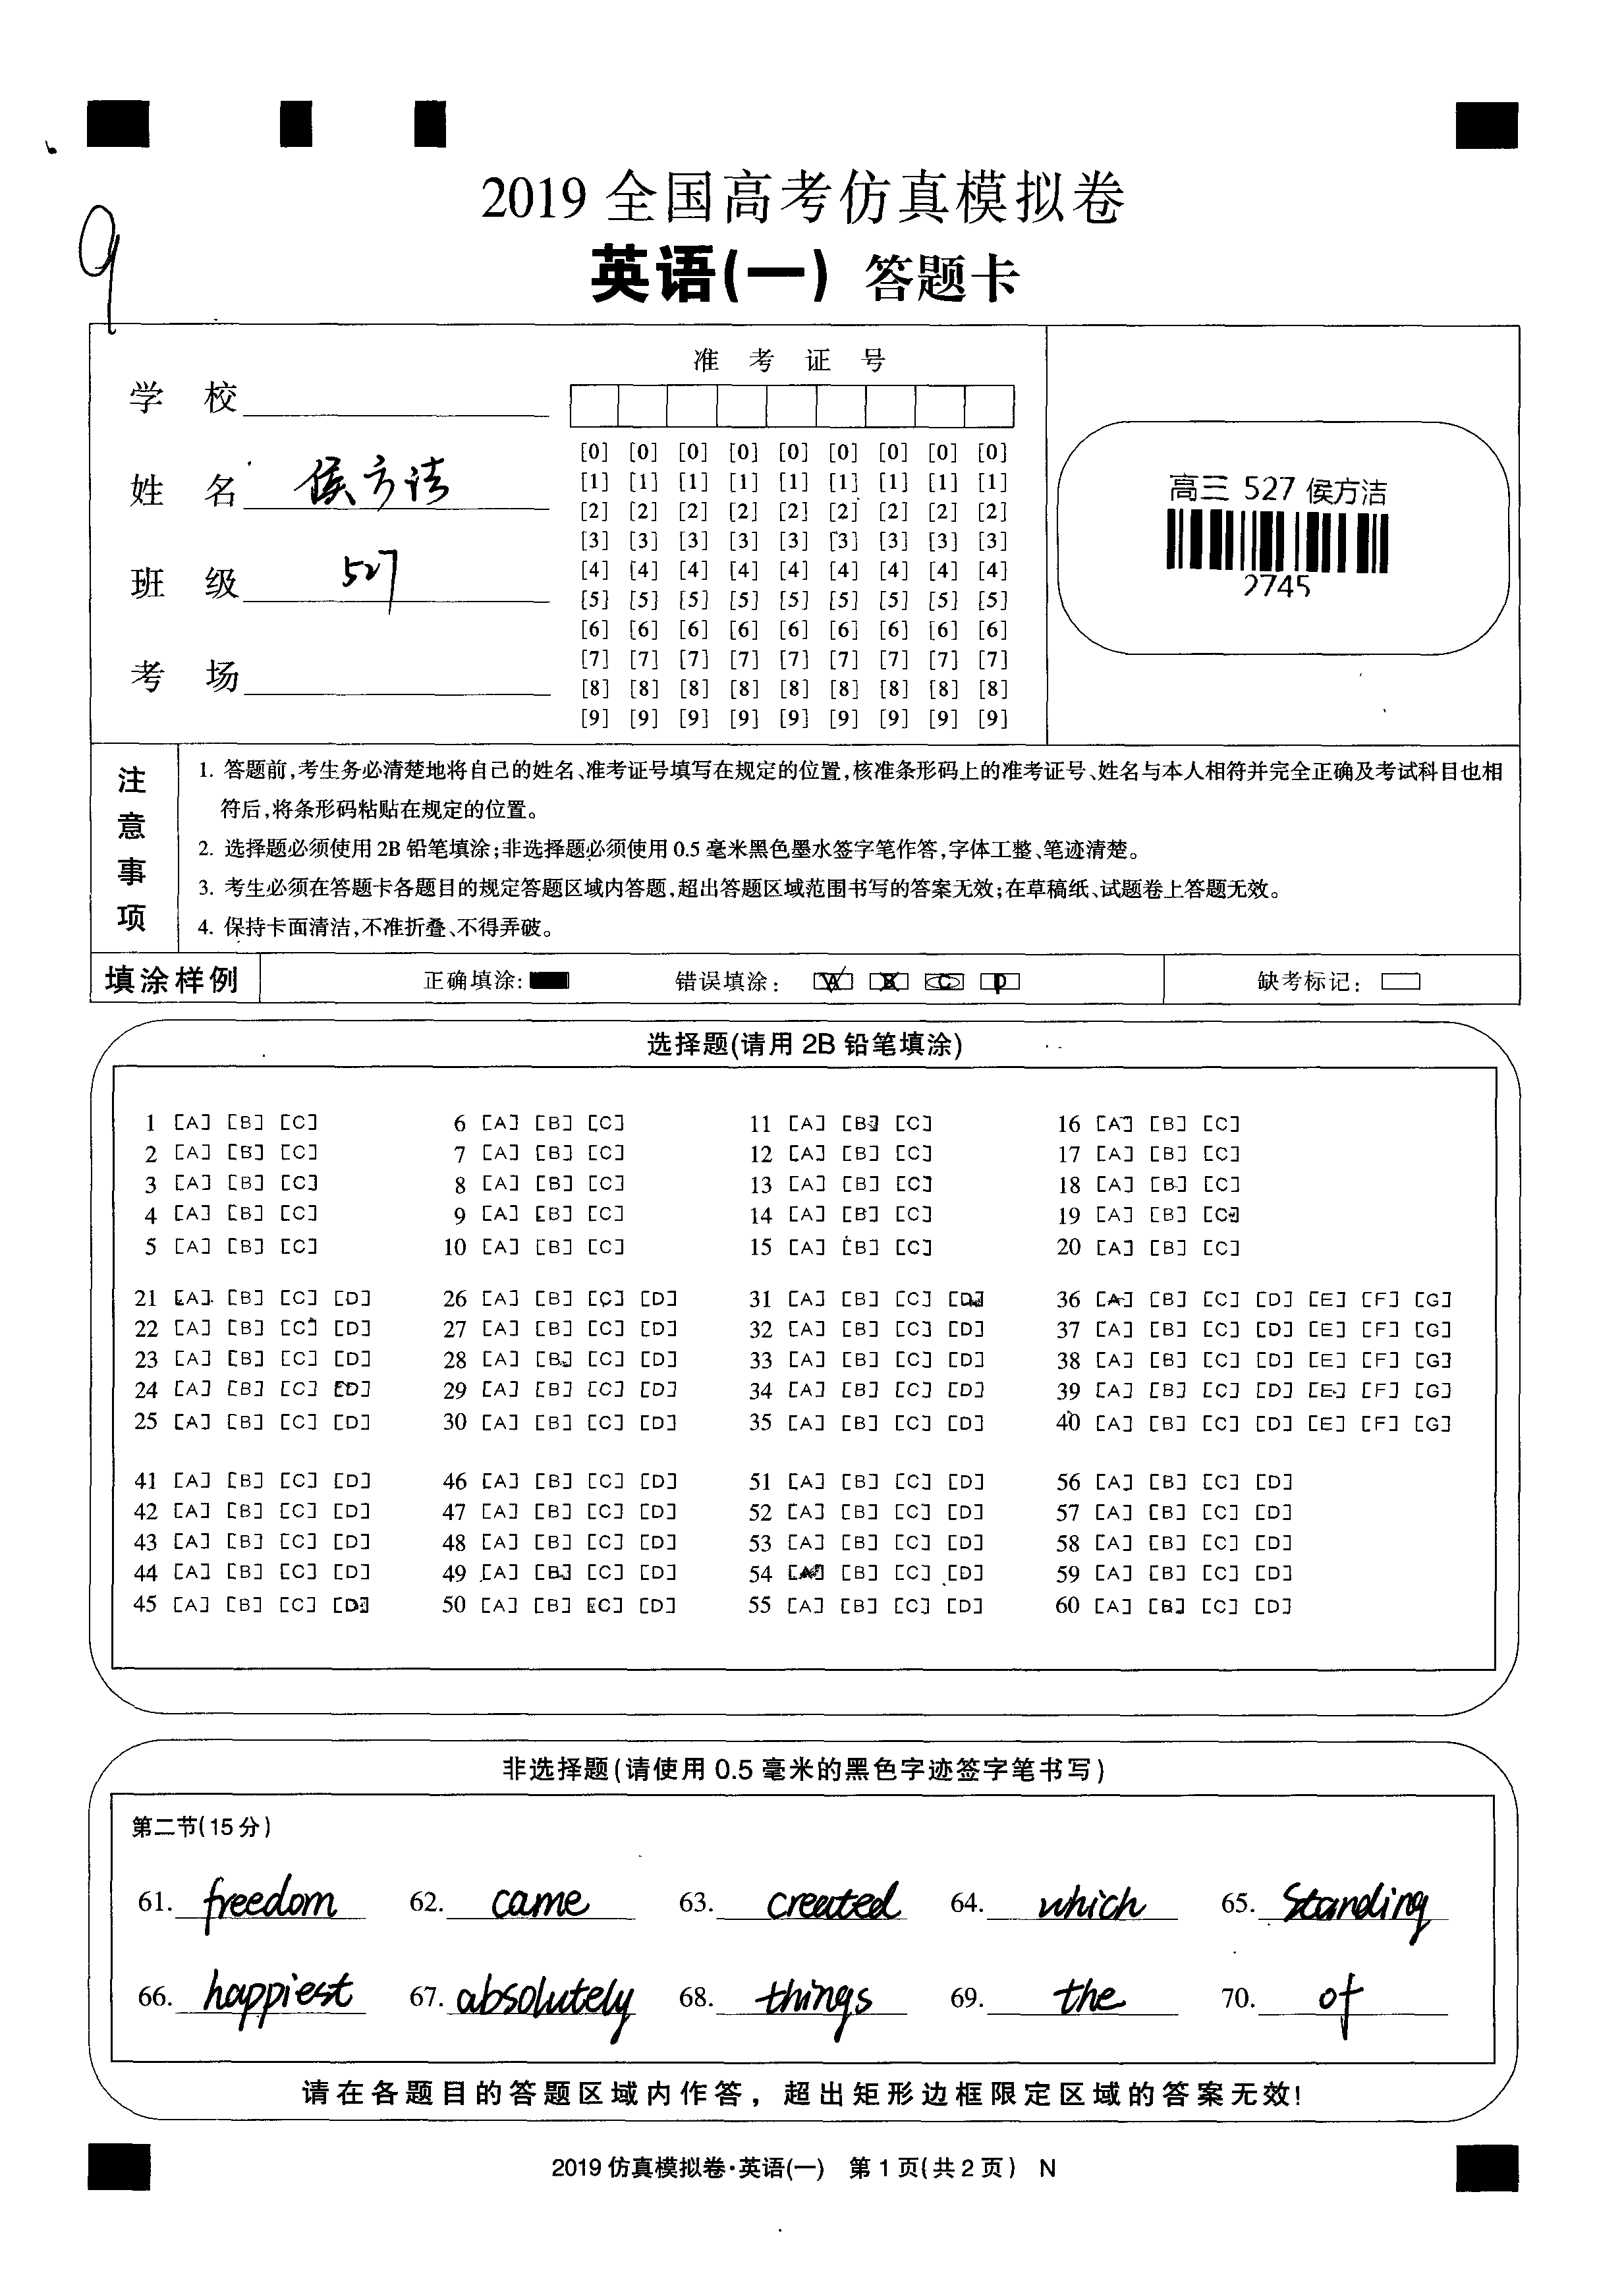 2019 全国高考仿真模拟卷
9
英语(一) 答题卡
准 考 证 号
学 校
姓 名 侯方洁
班 级 527
考 场
[0] [0] [0] [0] [0] [0] [0] [0] [0]
[1] [1] [1] [1] [1] [1] [1] [1] [1]
[2] [2] [2] [2] [2] [2] [2] [2] [2]
[3] [3] [3] [3] [3] [3] [3] [3] [3]
[4] [4] [4] [4] [4] [4] [4] [4] [4]
[5] [5] [5] [5] [5] [5] [5] [5] [5]
[6] [6] [6] [6] [6] [6] [6] [6] [6]
[7] [7] [7] [7] [7] [7] [7] [7] [7]
[8] [8] [8] [8] [8] [8] [8] [8] [8]
[9] [9] [9] [9] [9] [9] [9] [9] [9]
高三 527 侯方洁
2745
注意事项
1. 答题前,考生务必清楚地将自己的姓名、准考证号填写在规定的位置,核准条形码上的准考证号、姓名与本人相符并完全正确及考试科目也相
符后,将条形码粘贴在规定的位置。
2. 选择题必须使用 2B 铅笔填涂;非选择题必须使用 0.5 毫米黑色墨水签字笔作答,字体工整、笔迹清楚。
3. 考生必须在答题卡各题目的规定答题区域内答题,超出答题区域范围书写的答案无效;在草稿纸、试题卷上答题无效。
4. 保持卡面清洁,不准折叠、不得弄破。
填涂样例 正确填涂: 错误填涂: 缺考标记:
选择题(请用 2B 铅笔填涂)
1 [A] [B] [C] 6 [A] [B] [C] 11 [A] [B] [C] 16 [A] [B] [C]
2 [A] [B] [C] 7 [A] [B] [C] 12 [A] [B] [C] 17 [A] [B] [C]
3 [A] [B] [C] 8 [A] [B] [C] 13 [A] [B] [C] 18 [A] [B] [C]
4 [A] [B] [C] 9 [A] [B] [C] 14 [A] [B] [C] 19 [A] [B] [C]
5 [A] [B] [C] 10 [A] [B] [C] 15 [A] [B] [C] 20 [A] [B] [C]
21 [A] [B] [C] [D] 26 [A] [B] [C] [D] 31 [A] [B] [C] [D] 36 [A] [B] [C] [D] [E] [F] [G]
22 [A] [B] [C] [D] 27 [A] [B] [C] [D] 32 [A] [B] [C] [D] 37 [A] [B] [C] [D] [E] [F] [G]
23 [A] [B] [C] [D] 28 [A] [B] [C] [D] 33 [A] [B] [C] [D] 38 [A] [B] [C] [D] [E] [F] [G]
24 [A] [B] [C] [D] 29 [A] [B] [C] [D] 34 [A] [B] [C] [D] 39 [A] [B] [C] [D] [E] [F] [G]
25 [A] [B] [C] [D] 30 [A] [B] [C] [D] 35 [A] [B] [C] [D] 40 [A] [B] [C] [D] [E] [F] [G]
41 [A] [B] [C] [D] 46 [A] [B] [C] [D] 51 [A] [B] [C] [D] 56 [A] [B] [C] [D]
42 [A] [B] [C] [D] 47 [A] [B] [C] [D] 52 [A] [B] [C] [D] 57 [A] [B] [C] [D]
43 [A] [B] [C] [D] 48 [A] [B] [C] [D] 53 [A] [B] [C] [D] 58 [A] [B] [C] [D]
44 [A] [B] [C] [D] 49 [A] [B] [C] [D] 54 [A] [B] [C] [D] 59 [A] [B] [C] [D]
45 [A] [B] [C] [D] 50 [A] [B] [C] [D] 55 [A] [B] [C] [D] 60 [A] [B] [C] [D]
非选择题(请使用 0.5 毫米的黑色字迹签字笔书写)
第二节(15 分)
61. freedom 62. came 63. created 64. which 65. standing
66. happiest 67. absolutely 68. things 69. the 70. of
请在各题目的答题区域内作答，超出矩形边框限定区域的答案无效!
2019 仿真模拟卷·英语(一) 第 1 页(共 2 页) N